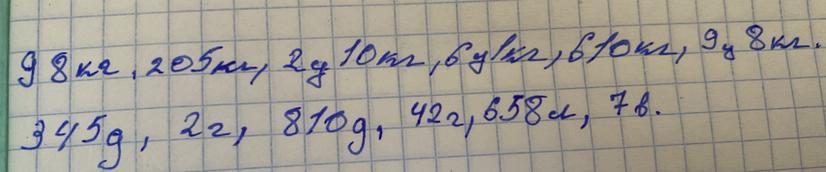 98кг, 205кг, 2ц 10кг, 6ц 1кг, 610кг, 9ц 8кг.
345д, 2г, 810д, 42г, 658л, 7в.